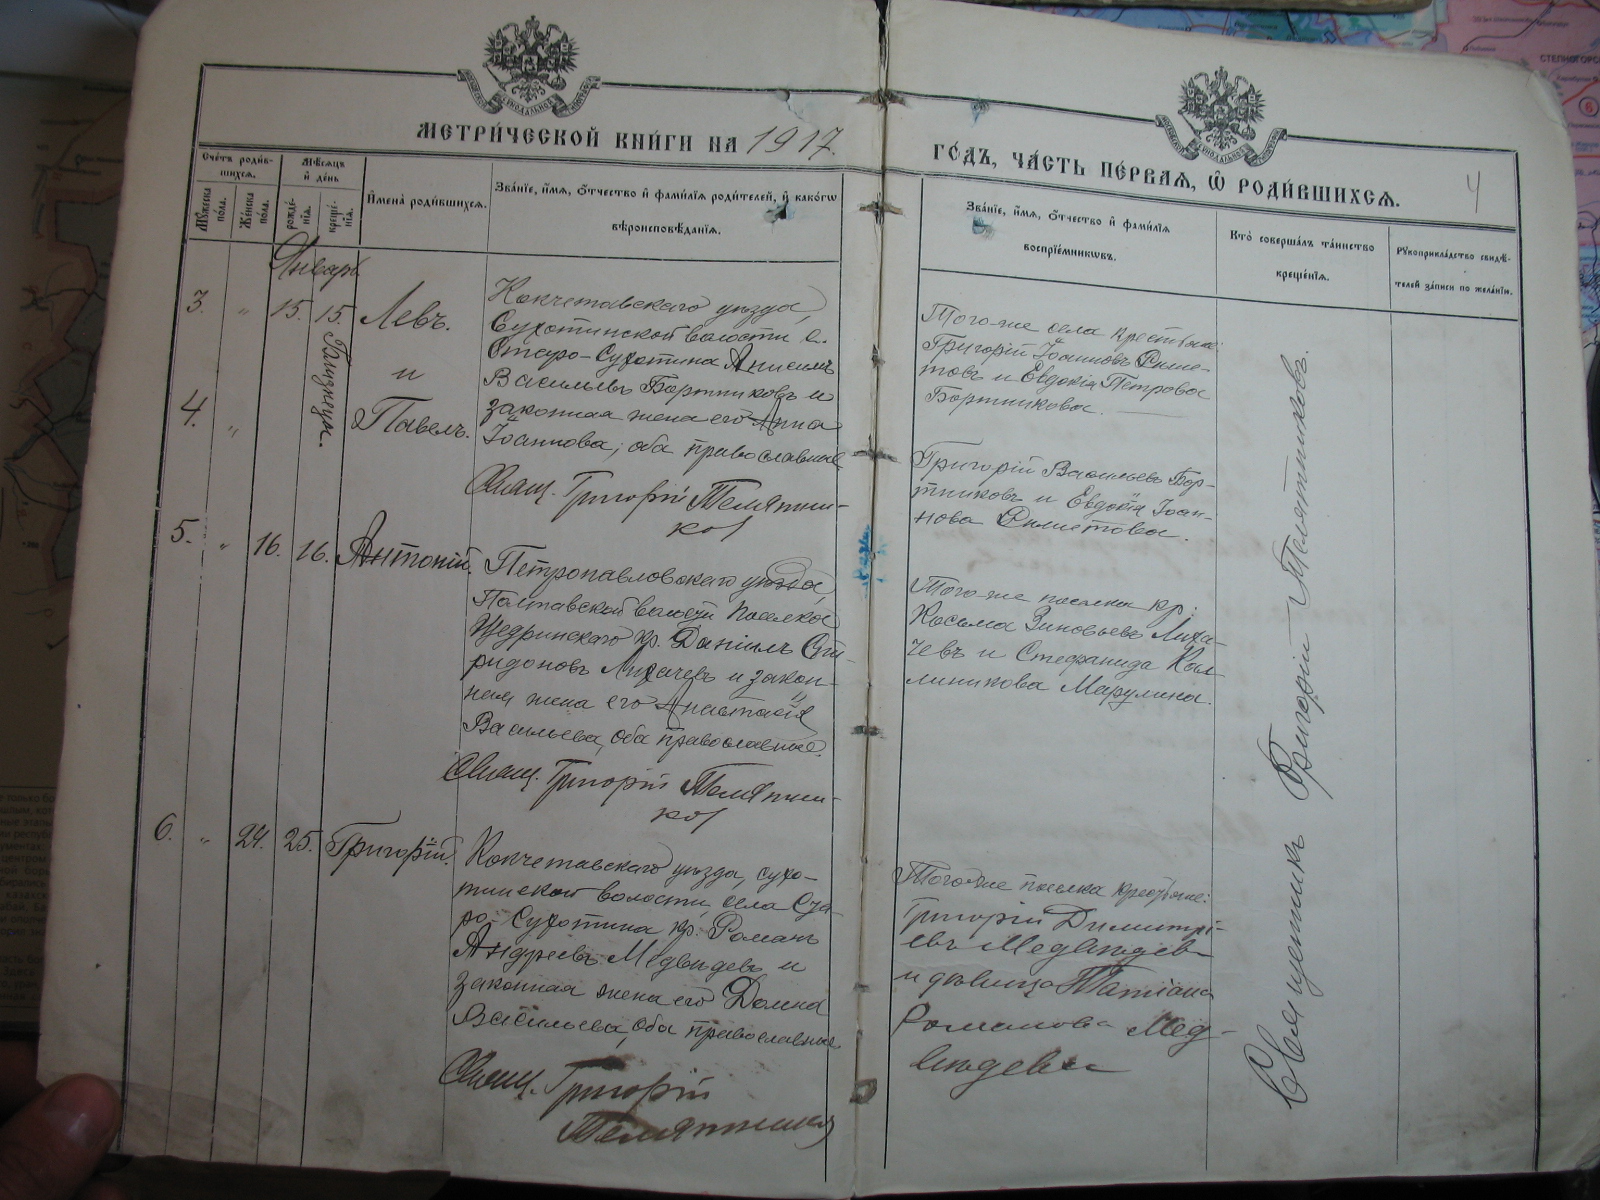 МЕТРИ́ЧЕСКОЙ КНИ́ГИ НА 1917.
ГО́ДЪ, ЧА́СТЬ ПЕ́РВАЯ, Ѽ РОДИ́ВШИХСѦ.
4
Сче́тъ роди́в-
шихсѧ.
Мꙋ́жеска по́ла.
Же́нска по́ла.
Мѣ́сѧцъ
и҆ де́нь
рожде́-
нїѧ.
креще́-
нїѧ.
И҆мена̀ роди́вшихсѧ.
Зва́нїе, и҆́мѧ, ѻ҆́тчество и҆ фами́лїѧ роди́телей, и҆ како́гѡ
вѣроисповѣ́данїѧ.
Зва́нїе, и҆́мѧ, ѻ҆́тчество и҆ фами́лїѧ
воспрїе́мникѡвъ.
Кто̀ соверша́лъ та́инство
креще́нїѧ.
Рꙋкоприкла́дство свидѣ́-
телей за́писи по жела́нїю.
Январь
3. " 15. 15. Левъ.
и
4. " Павелъ.
Близнецы.
Кокчетавскаго уѣзда,
Сухотинской волости с.
Старо-Сухотина Анисимъ
Васильевъ Бортниковъ и
законная жена его Анна
Іоаннова; оба православные
Свящ. Григорій Телятни-
ков
Того-же села крестьяне:
Григорій Іоанновъ Филис-
товъ и Евдокія Петрова
Бортникова.
Григорій Васильевъ Бор-
тниковъ и Евдокія Іоан-
нова Филистова.
5. " 16. 16. Антоній.
Петропавловскаго уѣзда,
Полтавской волости поселка
Щедринскаго кр. Даніилъ Спи-
ридоновъ Лихачевъ и закон-
ная жена его Анастасія
Васильева, оба православные.
Свящ. Григорій Телятни-
ков
Того-же поселка кр:
Косьма Зиновьевъ Лиха-
чевъ и Стефанида Кал-
линикова Марулина.
6. " 24. 25. Григорій.
Кокчетавскаго уѣзда, сухо-
тинской волости, села Ста-
ро-Сухотина кр. Романъ
Андреевъ Медвѣдевъ и
законная жена его Домна
Васильева, оба православные
Свящ. Григорій
Телятников
Того-же поселка крестьяне:
Григорій Димитрі-
евъ Медвѣдевъ
и дѣвица Татіана
Романова Мед-
вѣдева
Священникъ Григорій Телятниковъ.
СТЕПНОГОРС